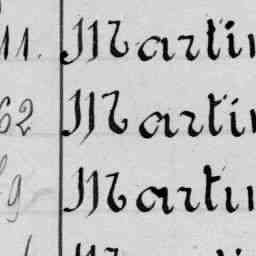 11. Martin
62 Martin
9 Martin